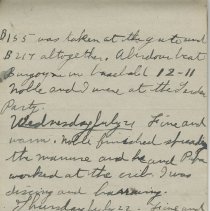 $155 was taken at the gate and
$217 altogether. Aberdour beat
Burgoyne in baseball 12-11
Noble and I were at the Garden
Party.
Wednesday July 21 Fine and
warm. Noble finished spreading
the manure and he and Pa
worked at the crib. I was
discing and harrowing.
Thursday July 22. Fine and